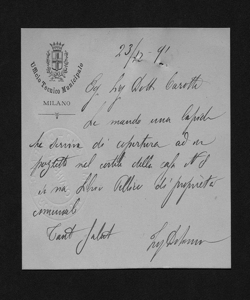 Ufficio Tecnico Municipale
MILANO
23/12-91
Eg. Ing. Dott. Carotti
Le mando una lapide
che serviva di copertura ad un
pozzetto nel cortile della casa N. 8
in via Silvio Pellico di proprietà
comunale
Tanti saluti
Ing.